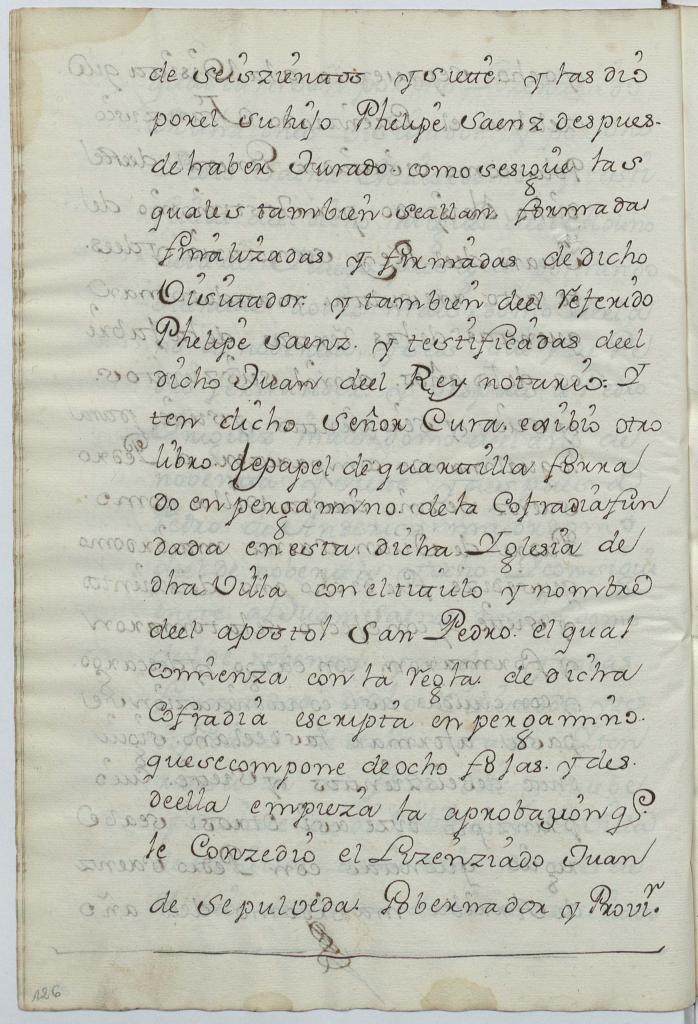 de seiszientos y siete. y las dio
porel su hijo Phelipe Saenz despues-
de haber Jurado. como sesigue las
quales tambien seallan formadas
finalizadas y firmadas de dicho
Visitador. y tambien deel Referido
Phelipe Saenz. y testificadas deel
dicho Juan deel Rey notario. Y
ten dicho Señor Cura. exibio otro
libro de papel de quartilla forra
do en pergamino. de la Cofradia fun
dada en esta dicha Yglesia de
dha Villa con el titulo y nombre
deel apostol San Pedro. el qual
comienza con la regla. de dicha
Cofradia escripta en pergamino.
que se compone de ocho fojas. y des.
deella empieza la aprobazion qe.
le Conzedio el Lizenziado Juan
de Sepulveda. Gobernador y Provir.
126